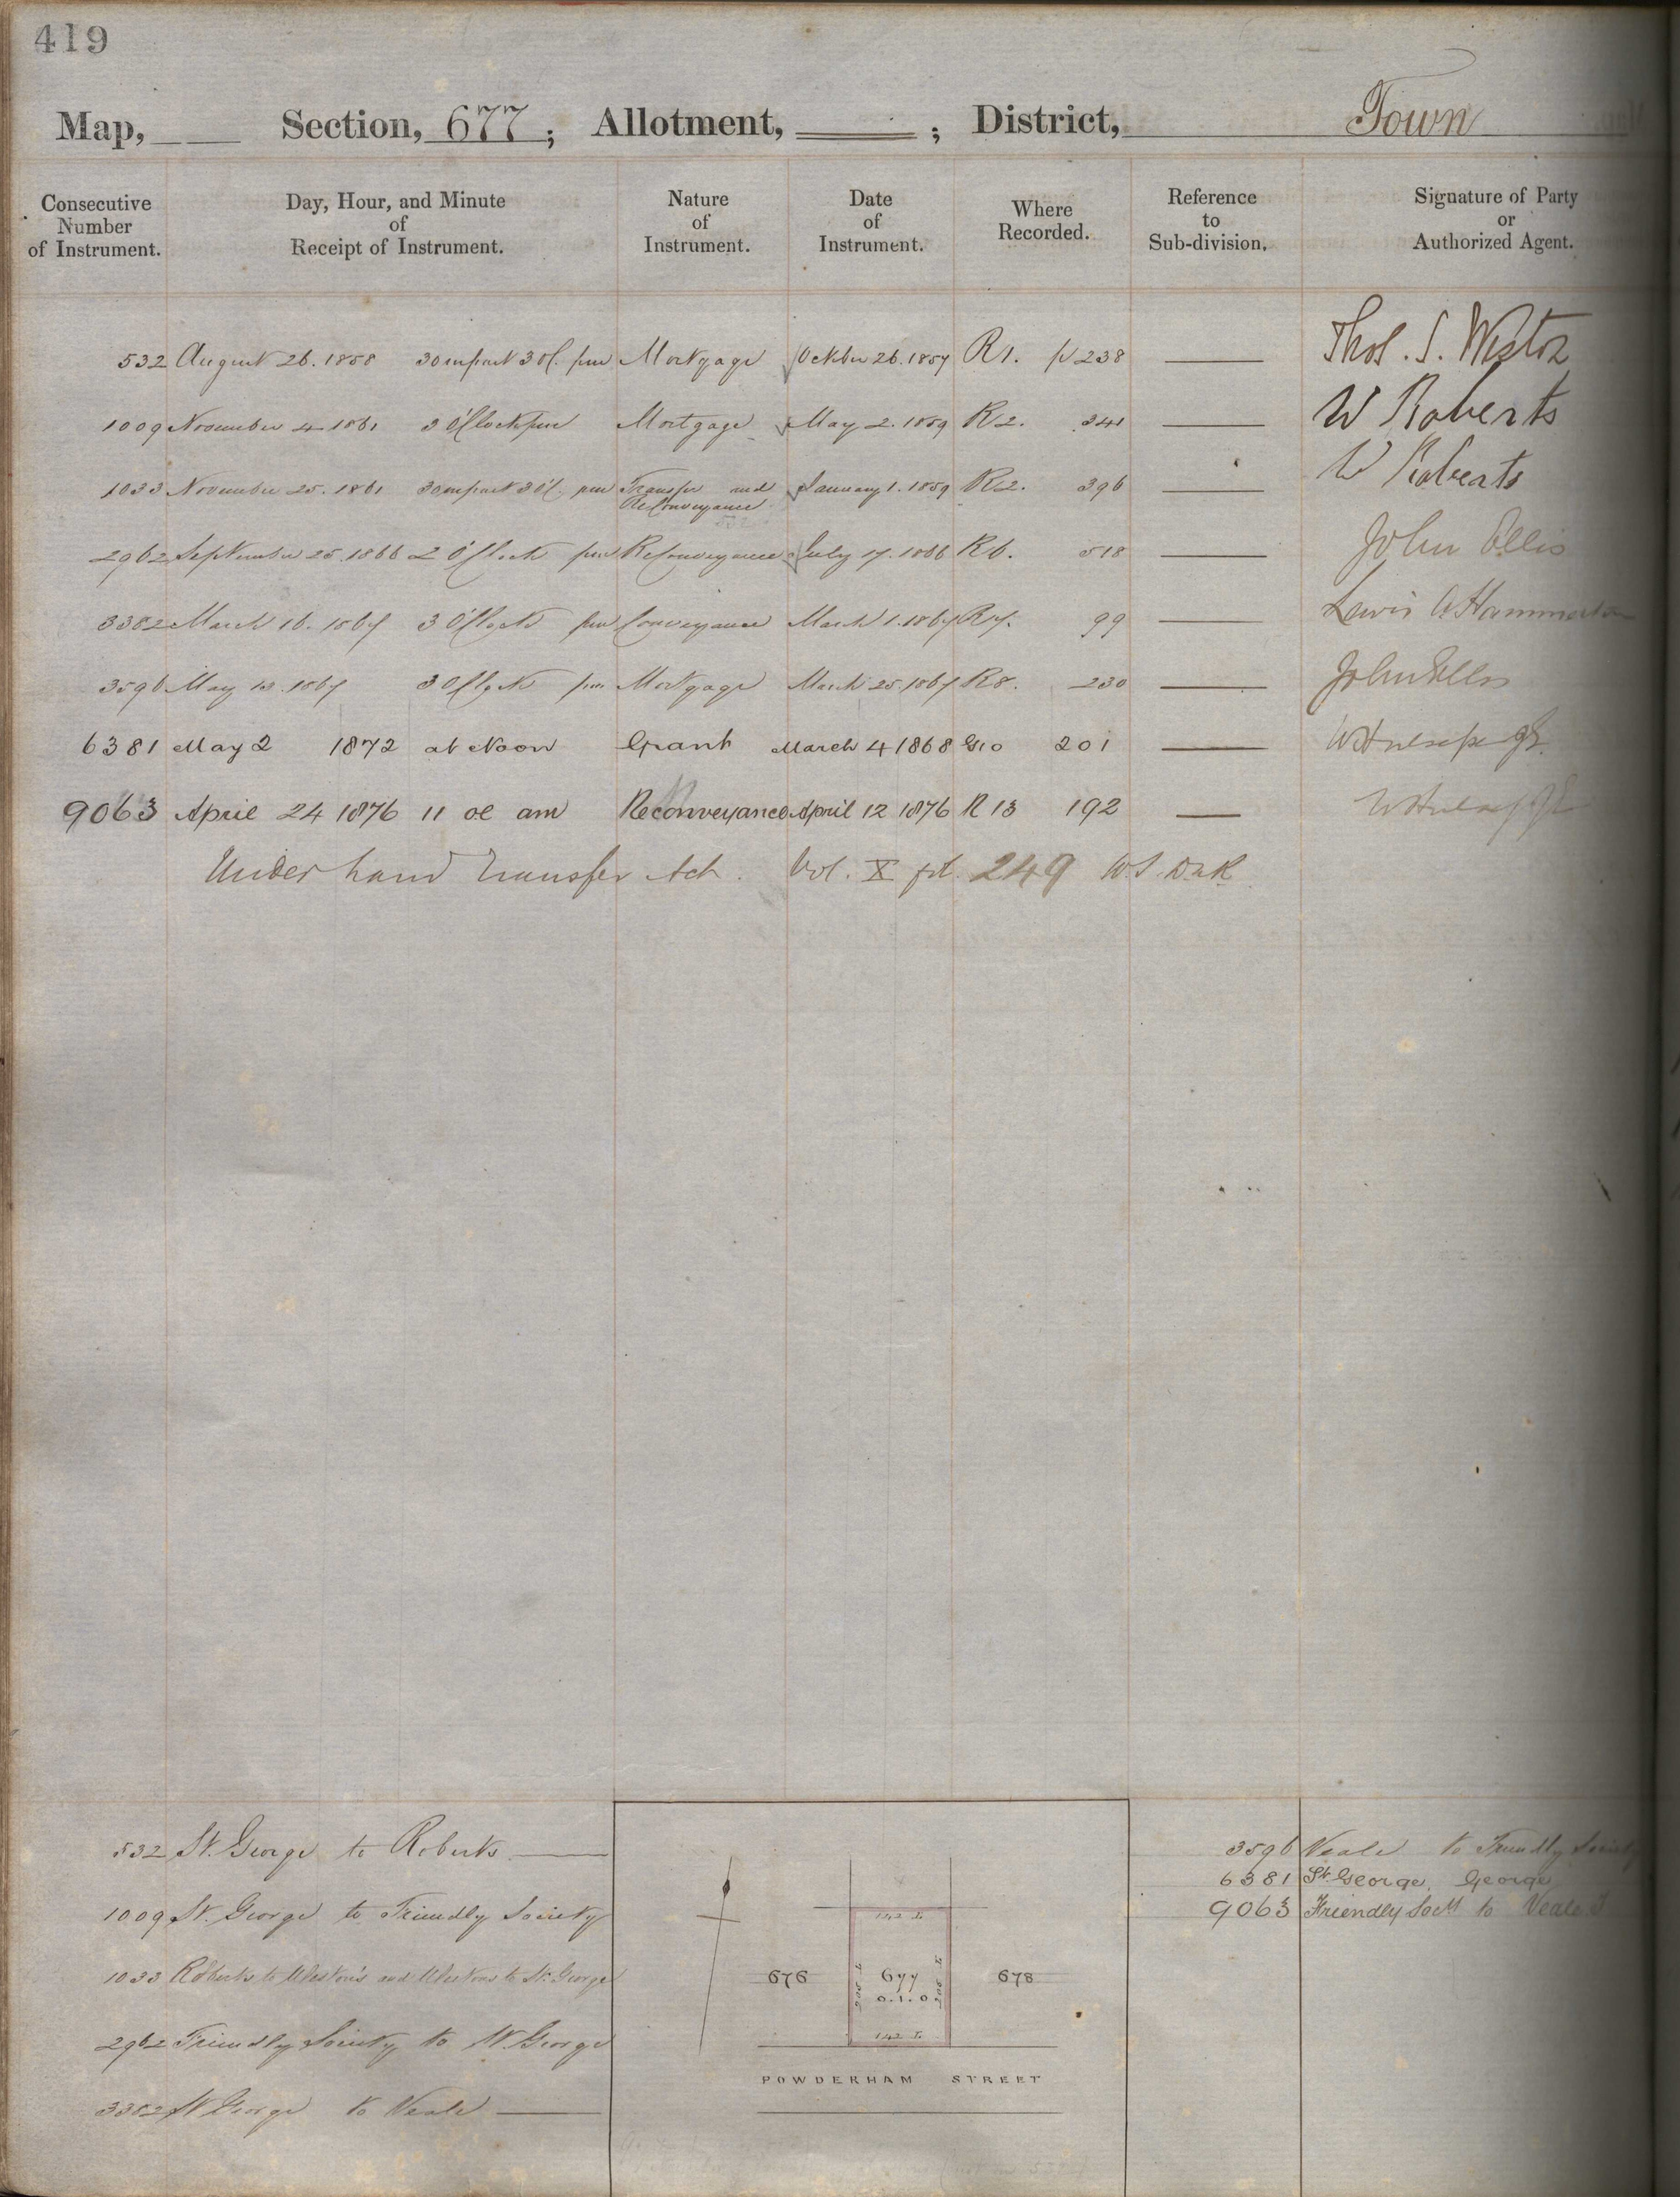 419
Map, Section, 677; Allotment, ; District, Town
Consecutive Number of Instrument. Day, Hour, and Minute of Receipt of Instrument. Nature of Instrument. Date of Instrument. Where Recorded. Reference to Sub-division. Signature of Party or Authorized Agent.
532 August 26. 1858 30 m past 3 Ol. pm Mortgage October 26. 1857 R1. p 238 Thos. S. Weston
1009 November 4 1861 3 O'Clock pm Mortgage May 2. 1859 R2. 341 W Roberts
1033 November 25. 1861 30 m past 3 O'C pm Transfer and January 1. 1859 R2. 396 W Roberts
ReConveyance
2962 September 25. 1866 2 O'Clock pm ReConveyance July 17. 1866 R6. 518 John Ellis
3382 March 16. 1867 3 O'Clock pm Conveyance March 1. 1867 R7. 99 Lewis A Hammerton
3596 May 13. 1867 3 O'Clock pm Mortgage March 25. 1867 R8. 230 John Ellis
6381 May 2 1872 at Noon Grant March 4 1868 G10 201
9063 April 24 1876 11 oc am Reconveyance April 12 1876 R 13 192
Under Land Transfer Act. Vol. X fol. 249
532 St. George to Roberts
1009 St. George to Friendly Society
1033 Roberts to Weston's and Westons to St. George
2962 Friendly Society to St. George
3382 St George to Veale
142 L
676
677
0.1.0
678
142 L
POWDERHAM STREET
3596 Veale to Friendly Society
6381 St. George, George
9063 Friendly Socty to Veale